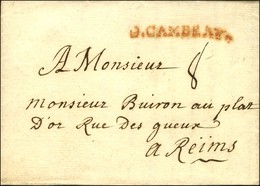 D.CAMBRAY.
A Monsieur 8
monsieur Buiron au plat
D'or Rue Des gueux
a Reims